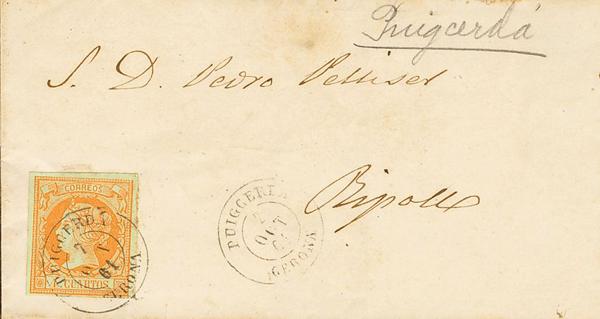 Puigcerdá
S. D. Pedro Pelliser
Ripoll
CORREOS
CUARTOS
PUIGCERDÁ
7
61
GERONA
PUIGGERDÁ
OCT
GERONA